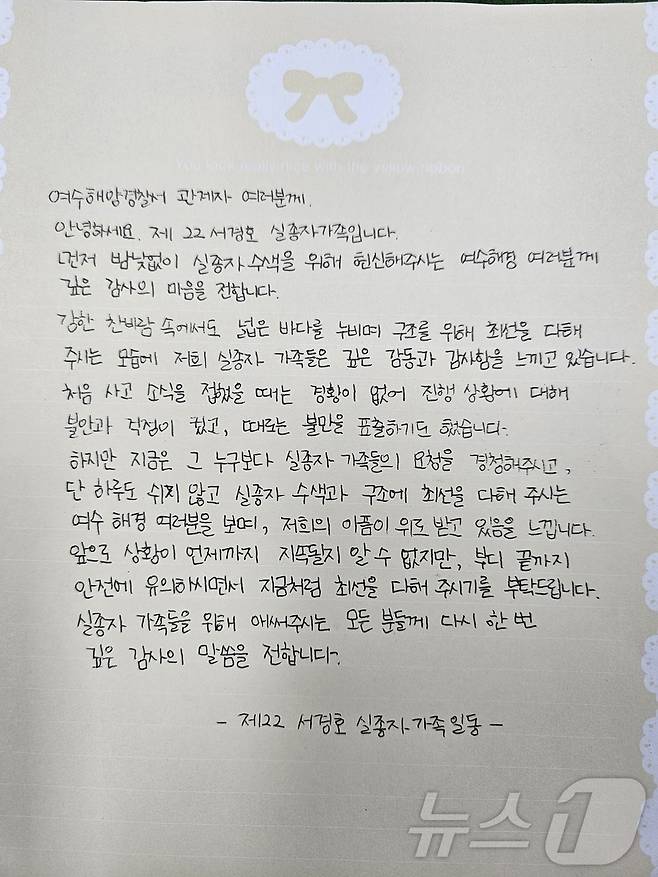 여수해양경찰서 관계자 여러분께.
안녕하세요. 제 22 서경호 실종자가족입니다.
먼저 밤낮없이 실종자 수색을 위해 헌신해주시는 여수해경 여러분께
깊은 감사의 마음을 전합니다.
강한 찬바람 속에서도 넓은 바다를 누비며 구조를 위해 최선을 다해
주시는 모습에 저희 실종자 가족들은 깊은 감동과 감사함을 느끼고 있습니다.
처음 사고 소식을 접했을 때는 경황이 없어 진행 상황에 대해
불안과 걱정이 컸고, 때로는 불만을 표출하기도 했습니다.
하지만 지금은 그 누구보다 실종자 가족들의 요청을 경청해주시고,
단 하루도 쉬지 않고 실종자 수색과 구조에 최선을 다해 주시는
여수 해경 여러분을 보며, 저희의 아픔이 위로 받고 있음을 느낍니다.
앞으로 상황이 언제까지 지속될지 알 수 없지만, 부디 끝까지
안전에 유의하시면서 지금처럼 최선을 다해 주시기를 부탁드립니다.
실종자 가족들을 위해 애써주시는 모든 분들께 다시 한 번
깊은 감사의 말씀을 전합니다.
- 제122 서경호 실종자가족일동 -
뉴스1